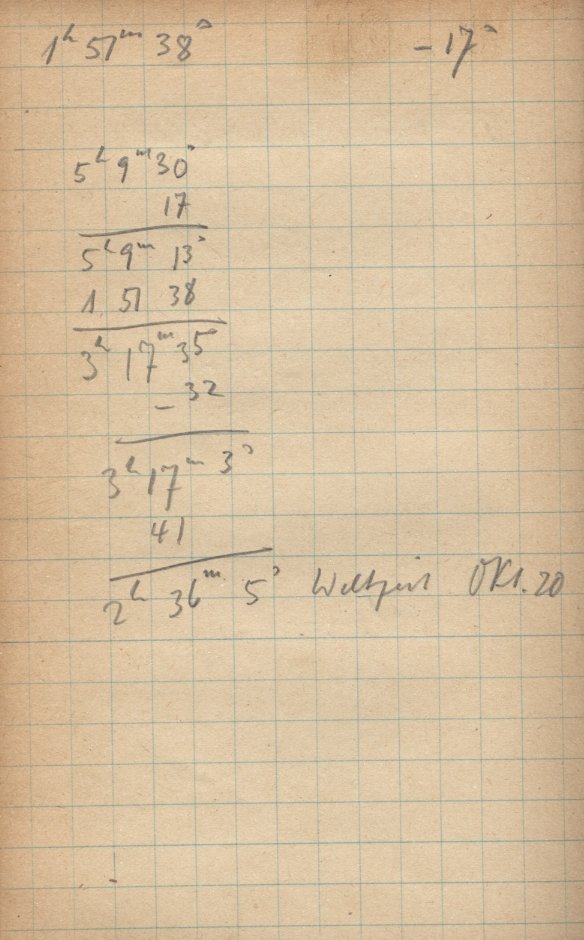 1ʰ 51ᵐ 38ˢ -17ˢ
5ʰ 9ᵐ 30ˢ
17
5ʰ 9ᵐ 13ˢ
1 51 38
3ʰ 17ᵐ 35ˢ
- 32
3ʰ 17ᵐ 3ˢ
41
2ʰ 36ᵐ 5ˢ Weltzeit Okt. 20